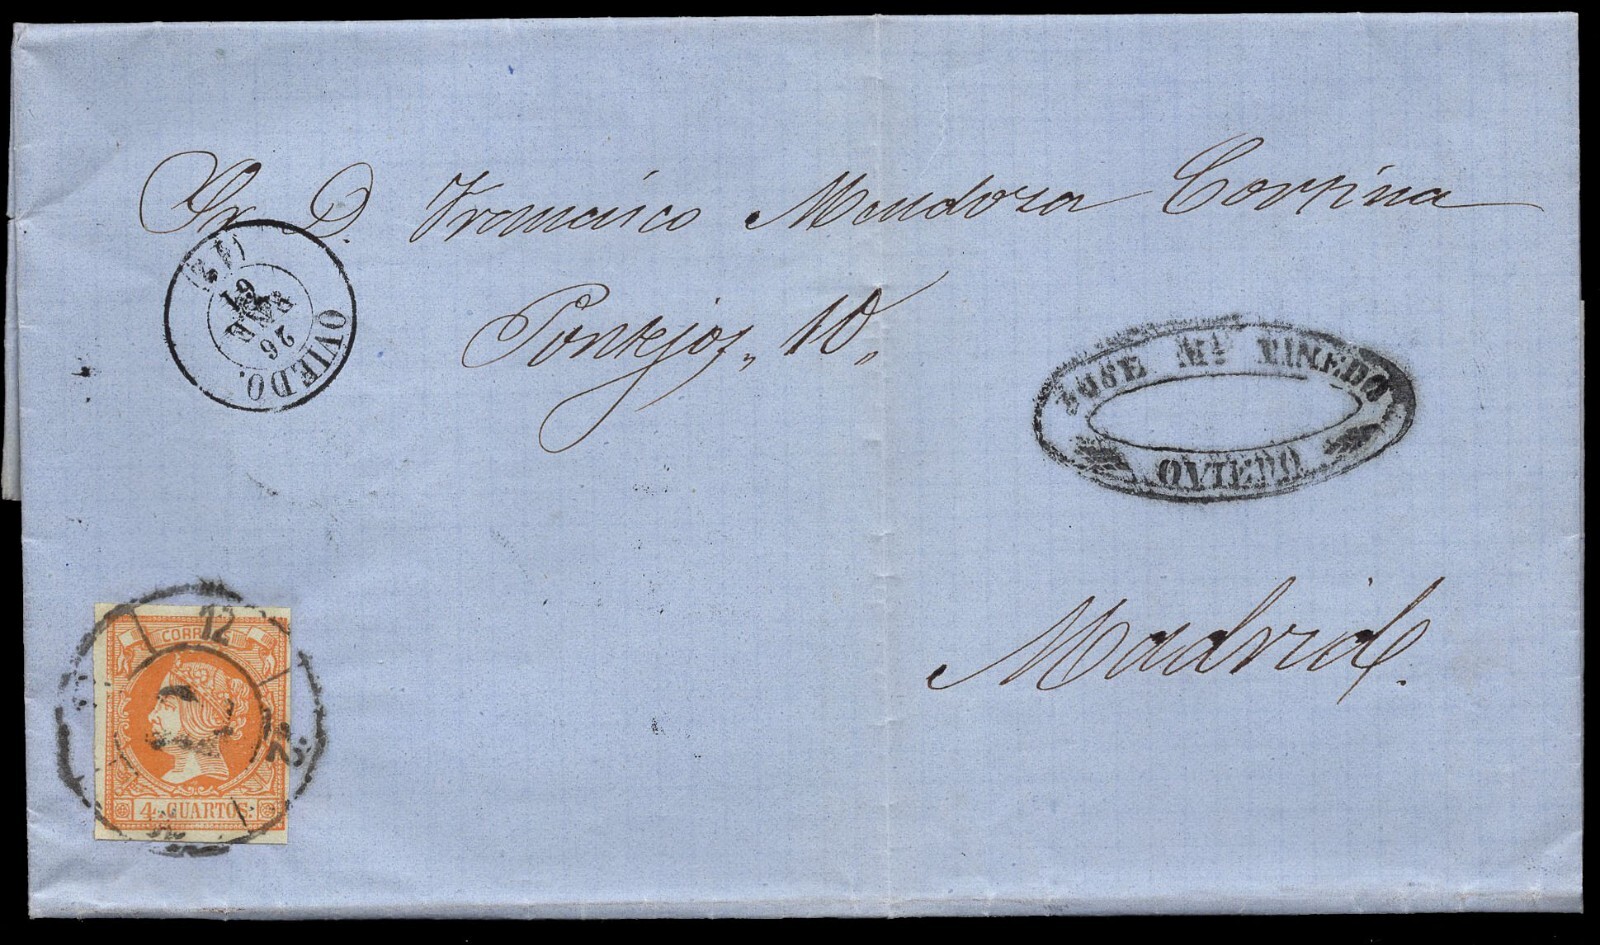 Sr. D. Francisco Mendoza Cortina
Pontejos, 10,
Madrid.
OVIEDO.
26
ENE
61
JOSE Mª PINEDO
OVIEDO
CORREOS
12
4 CUARTOS.